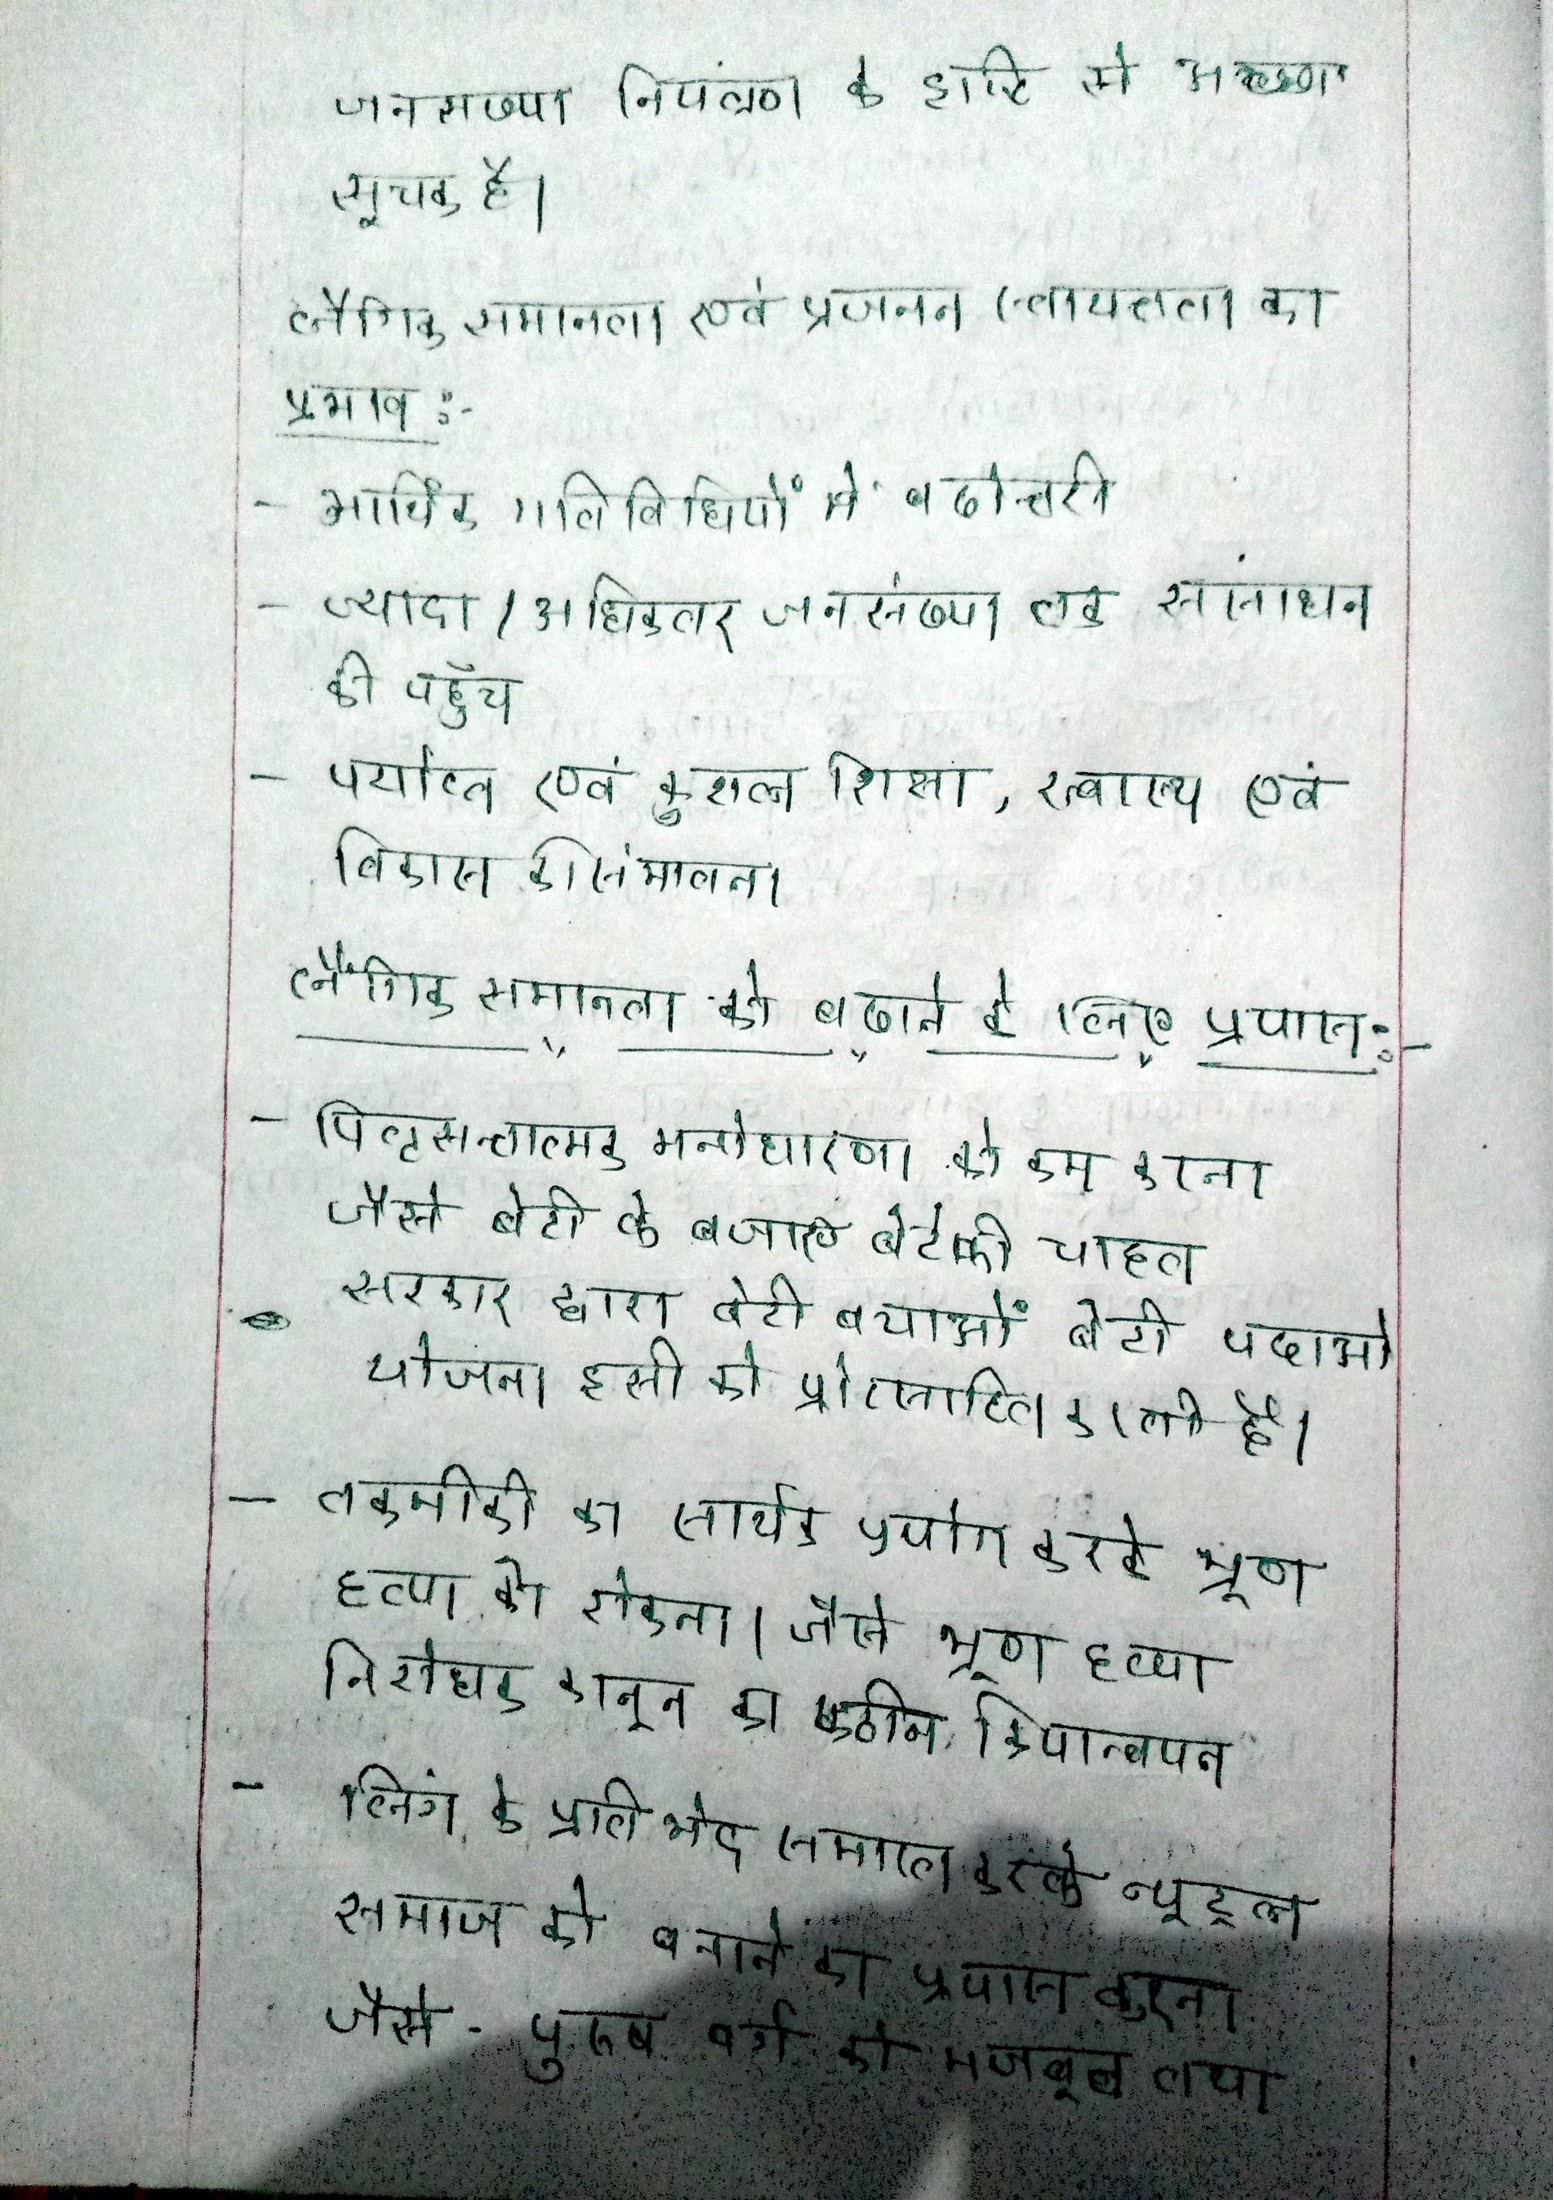 जनसख्या नियंत्रण के दृष्टि से अच्छा
सूचक है।
लैगिक समानता एवं प्रजनन स्वायत्तता का
प्रभाव :-
- आर्थिक गतिविधियों मे बढोत्तरी
- ज्यादा / अधिकतर जनसंख्या तक संसाधन
की पहुँच
- पर्याप्त एवं कुशल शिक्षा, स्वास्थ्य एवं
विकास की संभावना
लैंगिक समानता को बढाने के लिए प्रयास :-
- पितृसत्तात्मक मनोधारणा को कम करना
जैसे बेटी के बजाए बेटे की चाहत
सरकार द्वारा बेटी बचाओं बेटी पढाओ
योजना इसी को प्रोत्साहित करती है।
- तकमीकी का सार्थक प्रयोग करके भ्रूण
हत्या को रोकना। जैसे भ्रूण हत्या
निरोधक कानून का कठीन क्रियान्वयन
- लिंग के प्रति भेद समाप्त करके न्यूट्रल
समाज को बनाने का प्रयास करना
जैसे - पुरूष वर्ग को मजबूत तथा